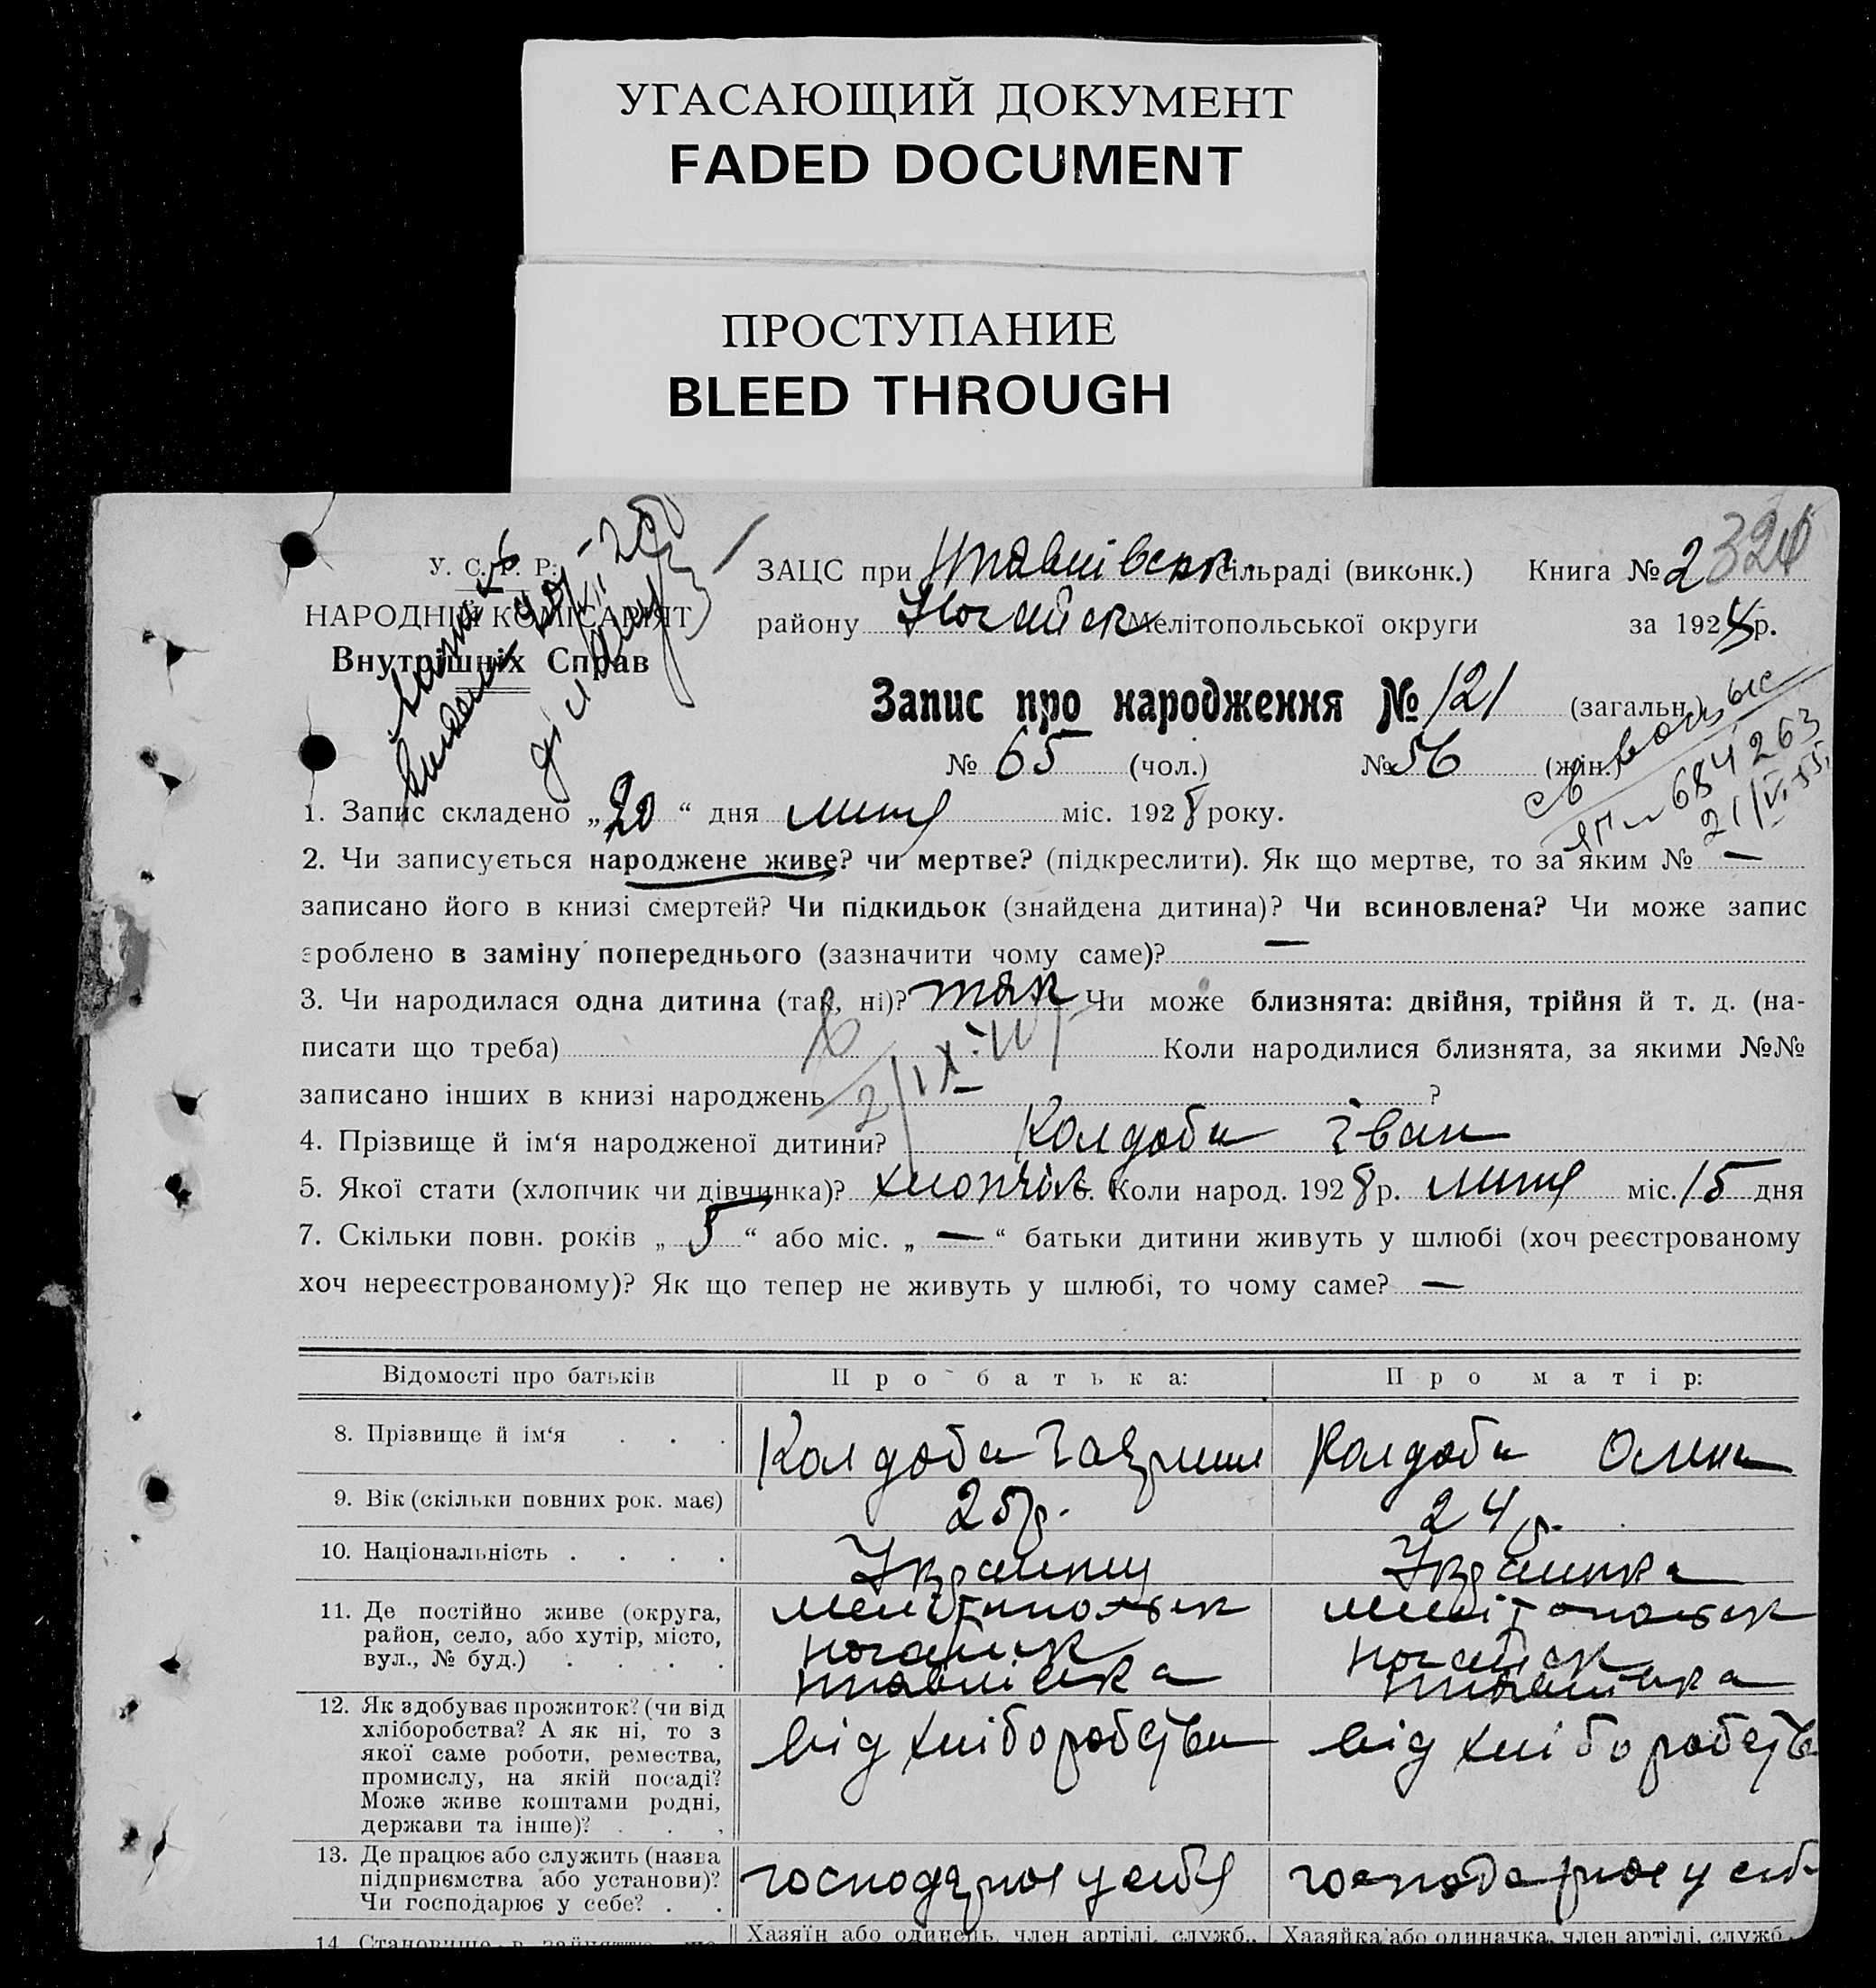 УГАСАЮЩИЙ ДОКУМЕНТ
FADED DOCUMENT
ПРОСТУПАНИЕ
BLEED THROUGH
У. С. Р. Р.
НАРОДНІЙ КОМІСАРІЯТ
Внутрішніх Справ
ЗАЦС при сільраді (виконк.) Книга № 2
району Ногайск Мелітопольської округи за 1928 р.
Запис про народження № 121 (загальн.)
№ 65 (чол.) № 56 (жін.)
684263
1. Запис складено „20“ дня липня міс. 1928 року.
2. Чи записується народжене живе? чи мертве? (підкреслити). Як що мертве, то за яким № —
записано його в книзі смертей? Чи підкидьок (знайдена дитина)? Чи всиновлена? Чи може запис
зроблено в заміну попереднього (зазначити чому саме)? —
3. Чи народилася одна дитина (так, ні)? так Чи може близнята: двійня, трійня й т. д. (на-
писати що треба) Коли народилися близнята, за якими №№
записано інших в книзі народжень ?
4. Прізвище й ім‘я народженої дитини? Колдоба Іван
5. Якої стати (хлопчик чи дівчинка)? хлопчік 6. Коли народ. 1928 р. липня міс. 15 дня
7. Скільки повн. років „5“ або міс. „—“ батьки дитини живуть у шлюбі (хоч реєстрованому
хоч нереєстрованому)? Як що тепер не живуть у шлюбі, то чому саме? —
Відомості про батьків Про батька: Про матір:
8. Прізвище й ім‘я . . . Колдоба Гаврило Колдоба Олена
9. Вік (скільки повних рок. має) 25 р. 24 р.
10. Національність . . . . Українец Українка
11. Де постійно живе (округа,
район, село, або хутір, місто,
вул., № буд.) . . . .
Мелітопольск Мелітопольск
Ногайск Ногайск
12. Як здобуває прожиток? (чи від
хліборобства? А як ні, то з
якої саме роботи, ремества,
промислу, на якій посаді?
Може живе коштами родні,
держави та інше)? . . .
від хліборобства від хліборобств
13. Де працює або служить (назва
підприємства або установи)?
Чи господарює у себе? . .
господарює у себя господарює у себ
14. Становище в занятті
Хазяїн або одинець, член артілі, служб., Хазяйка або одиначка, член артілі, служб.